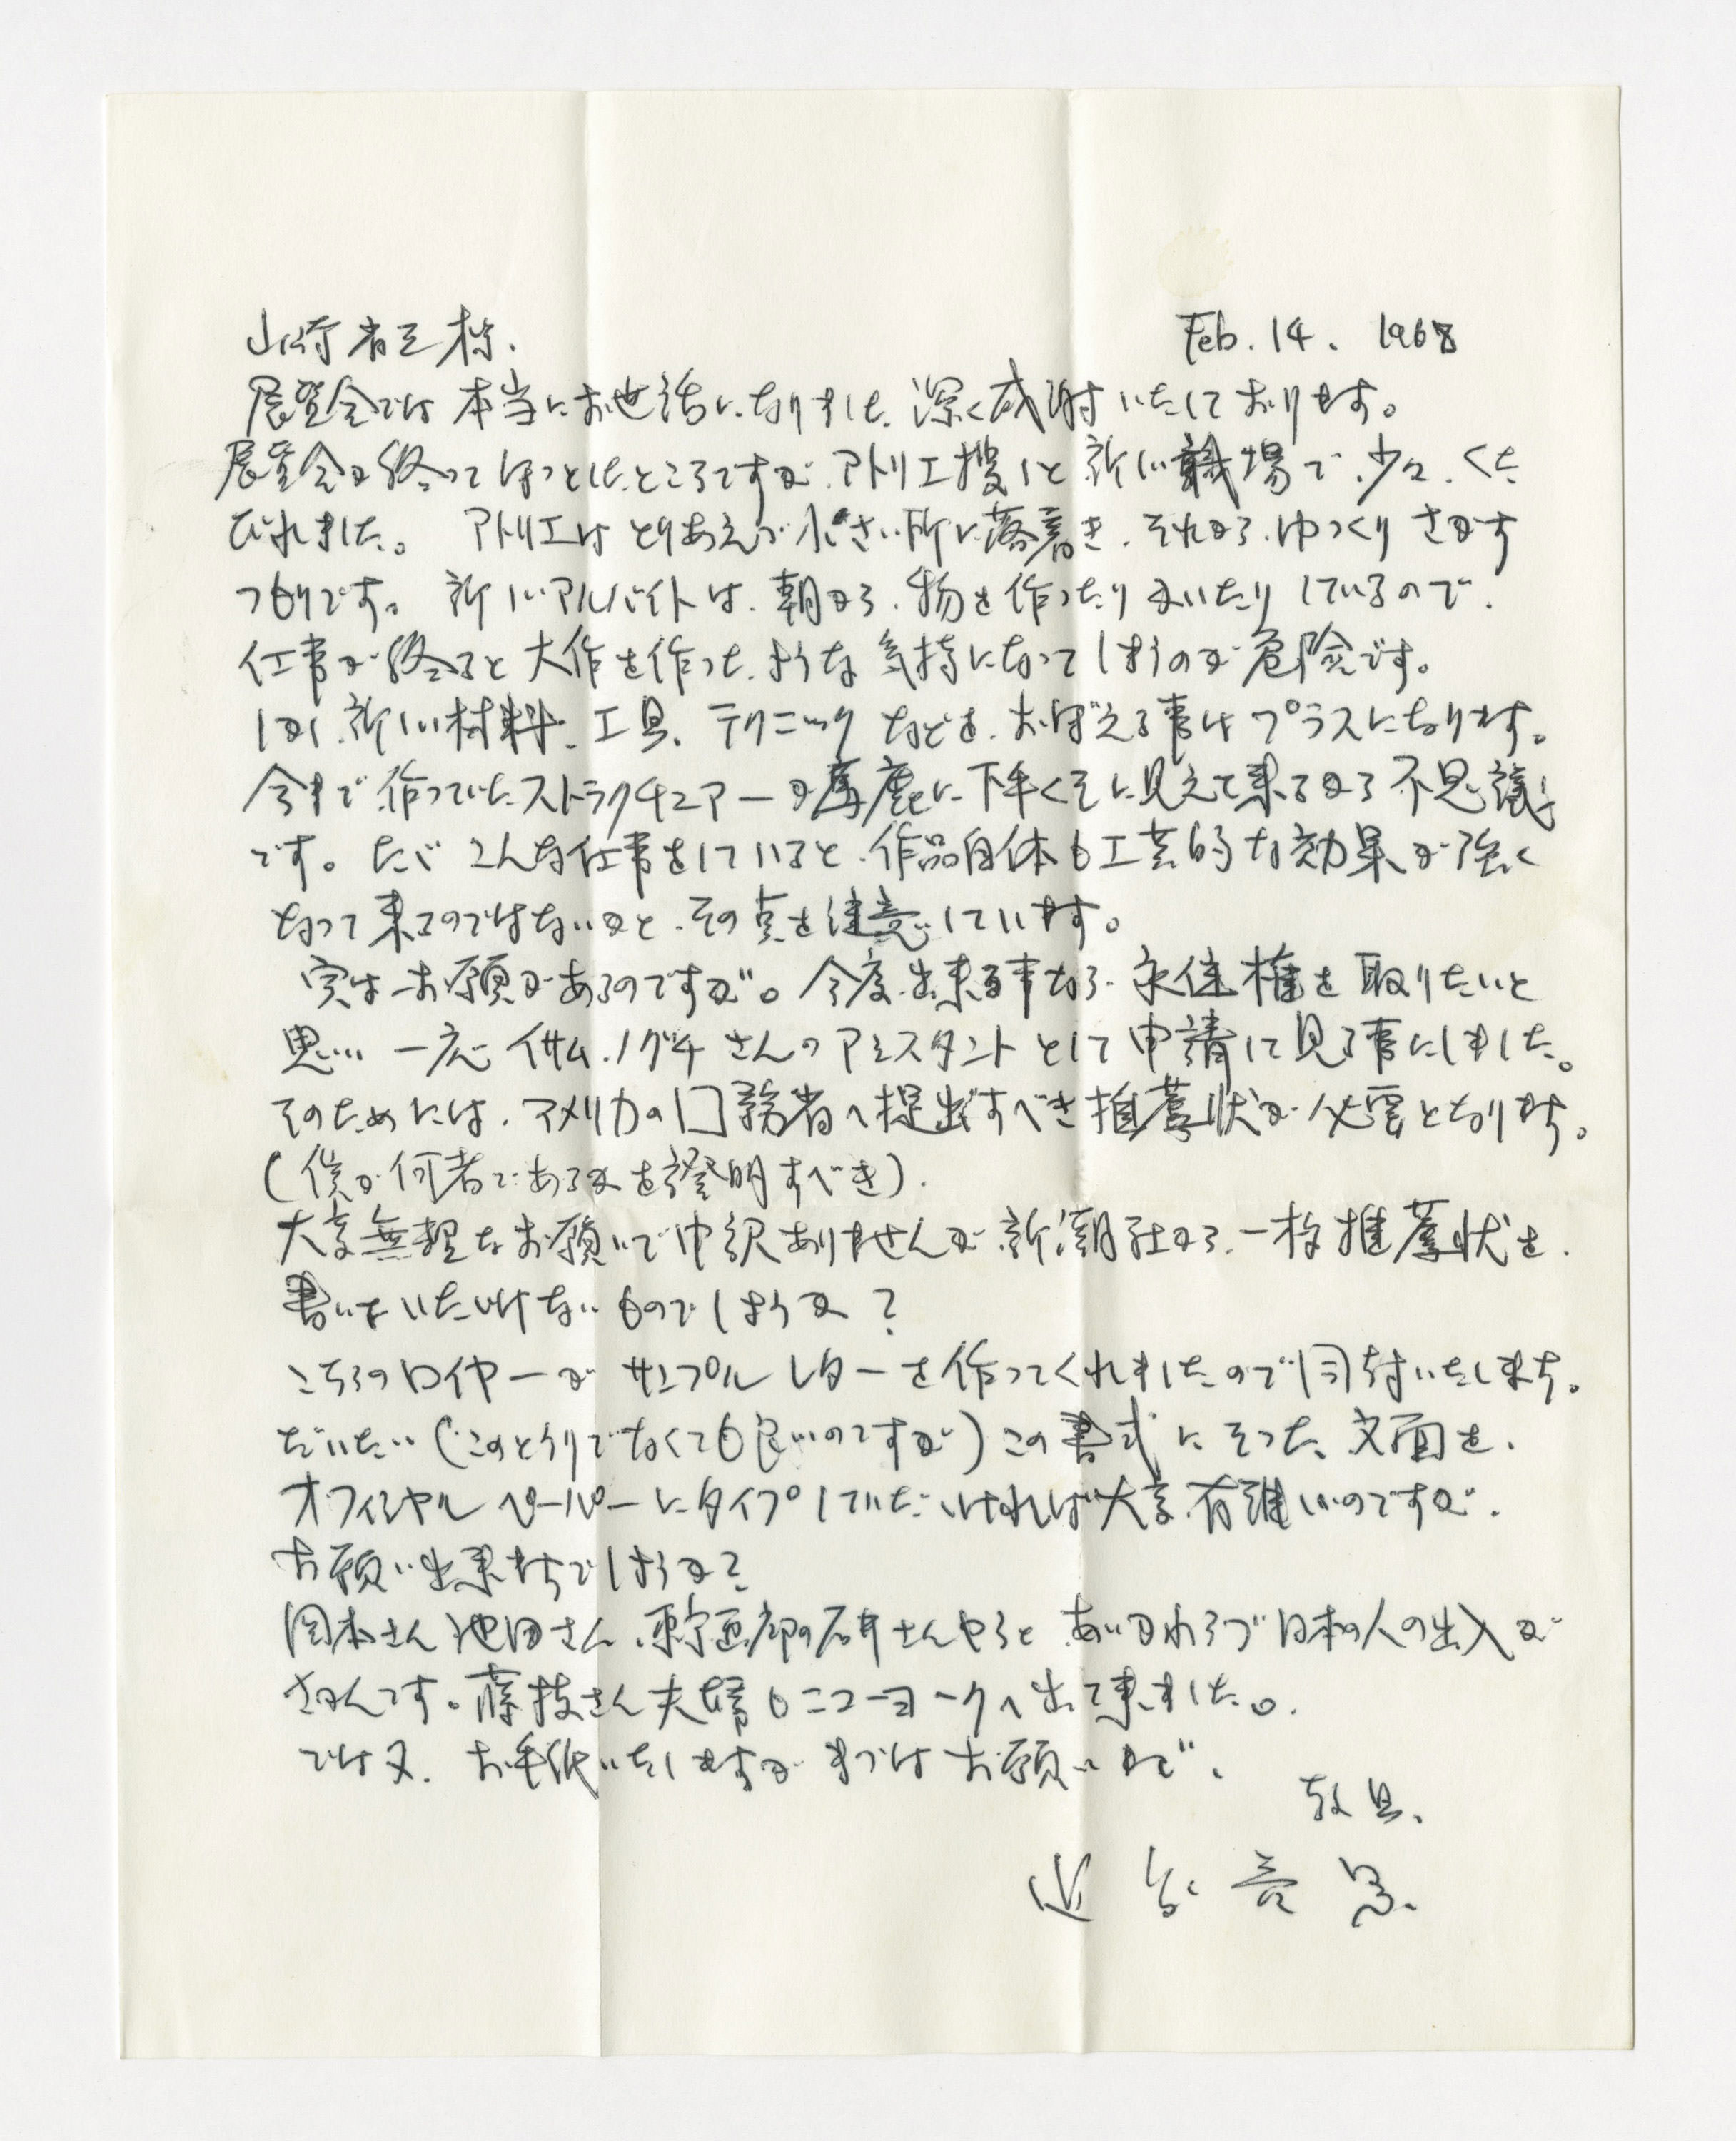 山崎省三様. Feb. 14. 1968
展覧会では本当にお世話になりました、深く感謝いたしております。
展覧会が終ってほっとしたところですが、アトリエ捜しと新しい職場で、少々、くた
びれました。 アトリエはとりあえず小さい所に落着き、それから、ゆっくりさがす
つもりです。 新しいアルバイトは、朝から、物を作ったりかいたりしているので、
仕事が終ると大作を作った、ような気持になってしまうのが危険です。
しかし、新しい材料、工具、テクニックなどを、おぼえる事はプラスになります。
今まで作っていたストラクチュアーが馬鹿に下手くそに見えて来るから不思議
です。ただこんな仕事をしていると、作品自体も工芸的な効果が強く
なって来るのではないかと、その点を注意しています。
実はお願があるのですが。今度出来る事なら、永住権を取りたいと
思い、一応イサム.ノグチさんのアシスタントとして申請して見る事にしました。
そのためには、アメリカの国務省へ提出すべき推薦状が必要となります。
(僕が何者であるかを証明すべき).
大変無理なお願いで申訳ありませんが、新潮社から、一枚推薦状を、
書いていただけないものでしょうか?
こちらのロイヤーがサンプルレターを作ってくれましたので同封いたします。
だいたい(このとうりでなくても良いのですが)この書式にそった、文面を、
オフィシャルペーパーにタイプしていただければ大変有難いのですが、
お願い出来ますでしょうか?
岡本さん池田さん、東京画廊の石井さんやらと、あいかわらず日本の人の出入が
さかんです。藤枝さん夫婦もニューヨークへ出て来ました。
では又、お手紙いたしますがまづはお願いまで、
敬具、